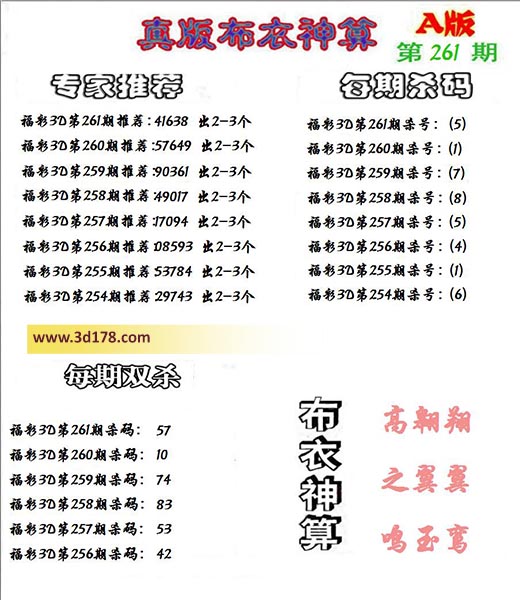 真版布衣神算
A版
第 261 期
专家推荐
福彩3D第261期推荐:41638 出2-3个
福彩3D第260期推荐:57649 出2-3个
福彩3D第259期推荐:90361 出2-3个
福彩3D第258期推荐:49017 出2-3个
福彩3D第257期推荐:17094 出2-3个
福彩3D第256期推荐:08593 出2-3个
福彩3D第255期推荐:53784 出2-3个
福彩3D第254期推荐:29743 出2-3个
每期杀码
福彩3D第261期杀号:(5)
福彩3D第260期杀号:(1)
福彩3D第259期杀号:(7)
福彩3D第258期杀号:(8)
福彩3D第257期杀号:(5)
福彩3D第256期杀号:(4)
福彩3D第255期杀号:(1)
福彩3D第254期杀号:(6)
www.3d178.com
每期双杀
福彩3D第261期杀码: 57
福彩3D第260期杀码: 10
福彩3D第259期杀码: 74
福彩3D第258期杀码: 83
福彩3D第257期杀码: 53
福彩3D第256期杀码: 42
布衣神算
高翱翔
之翼翼
鸣玉鸾